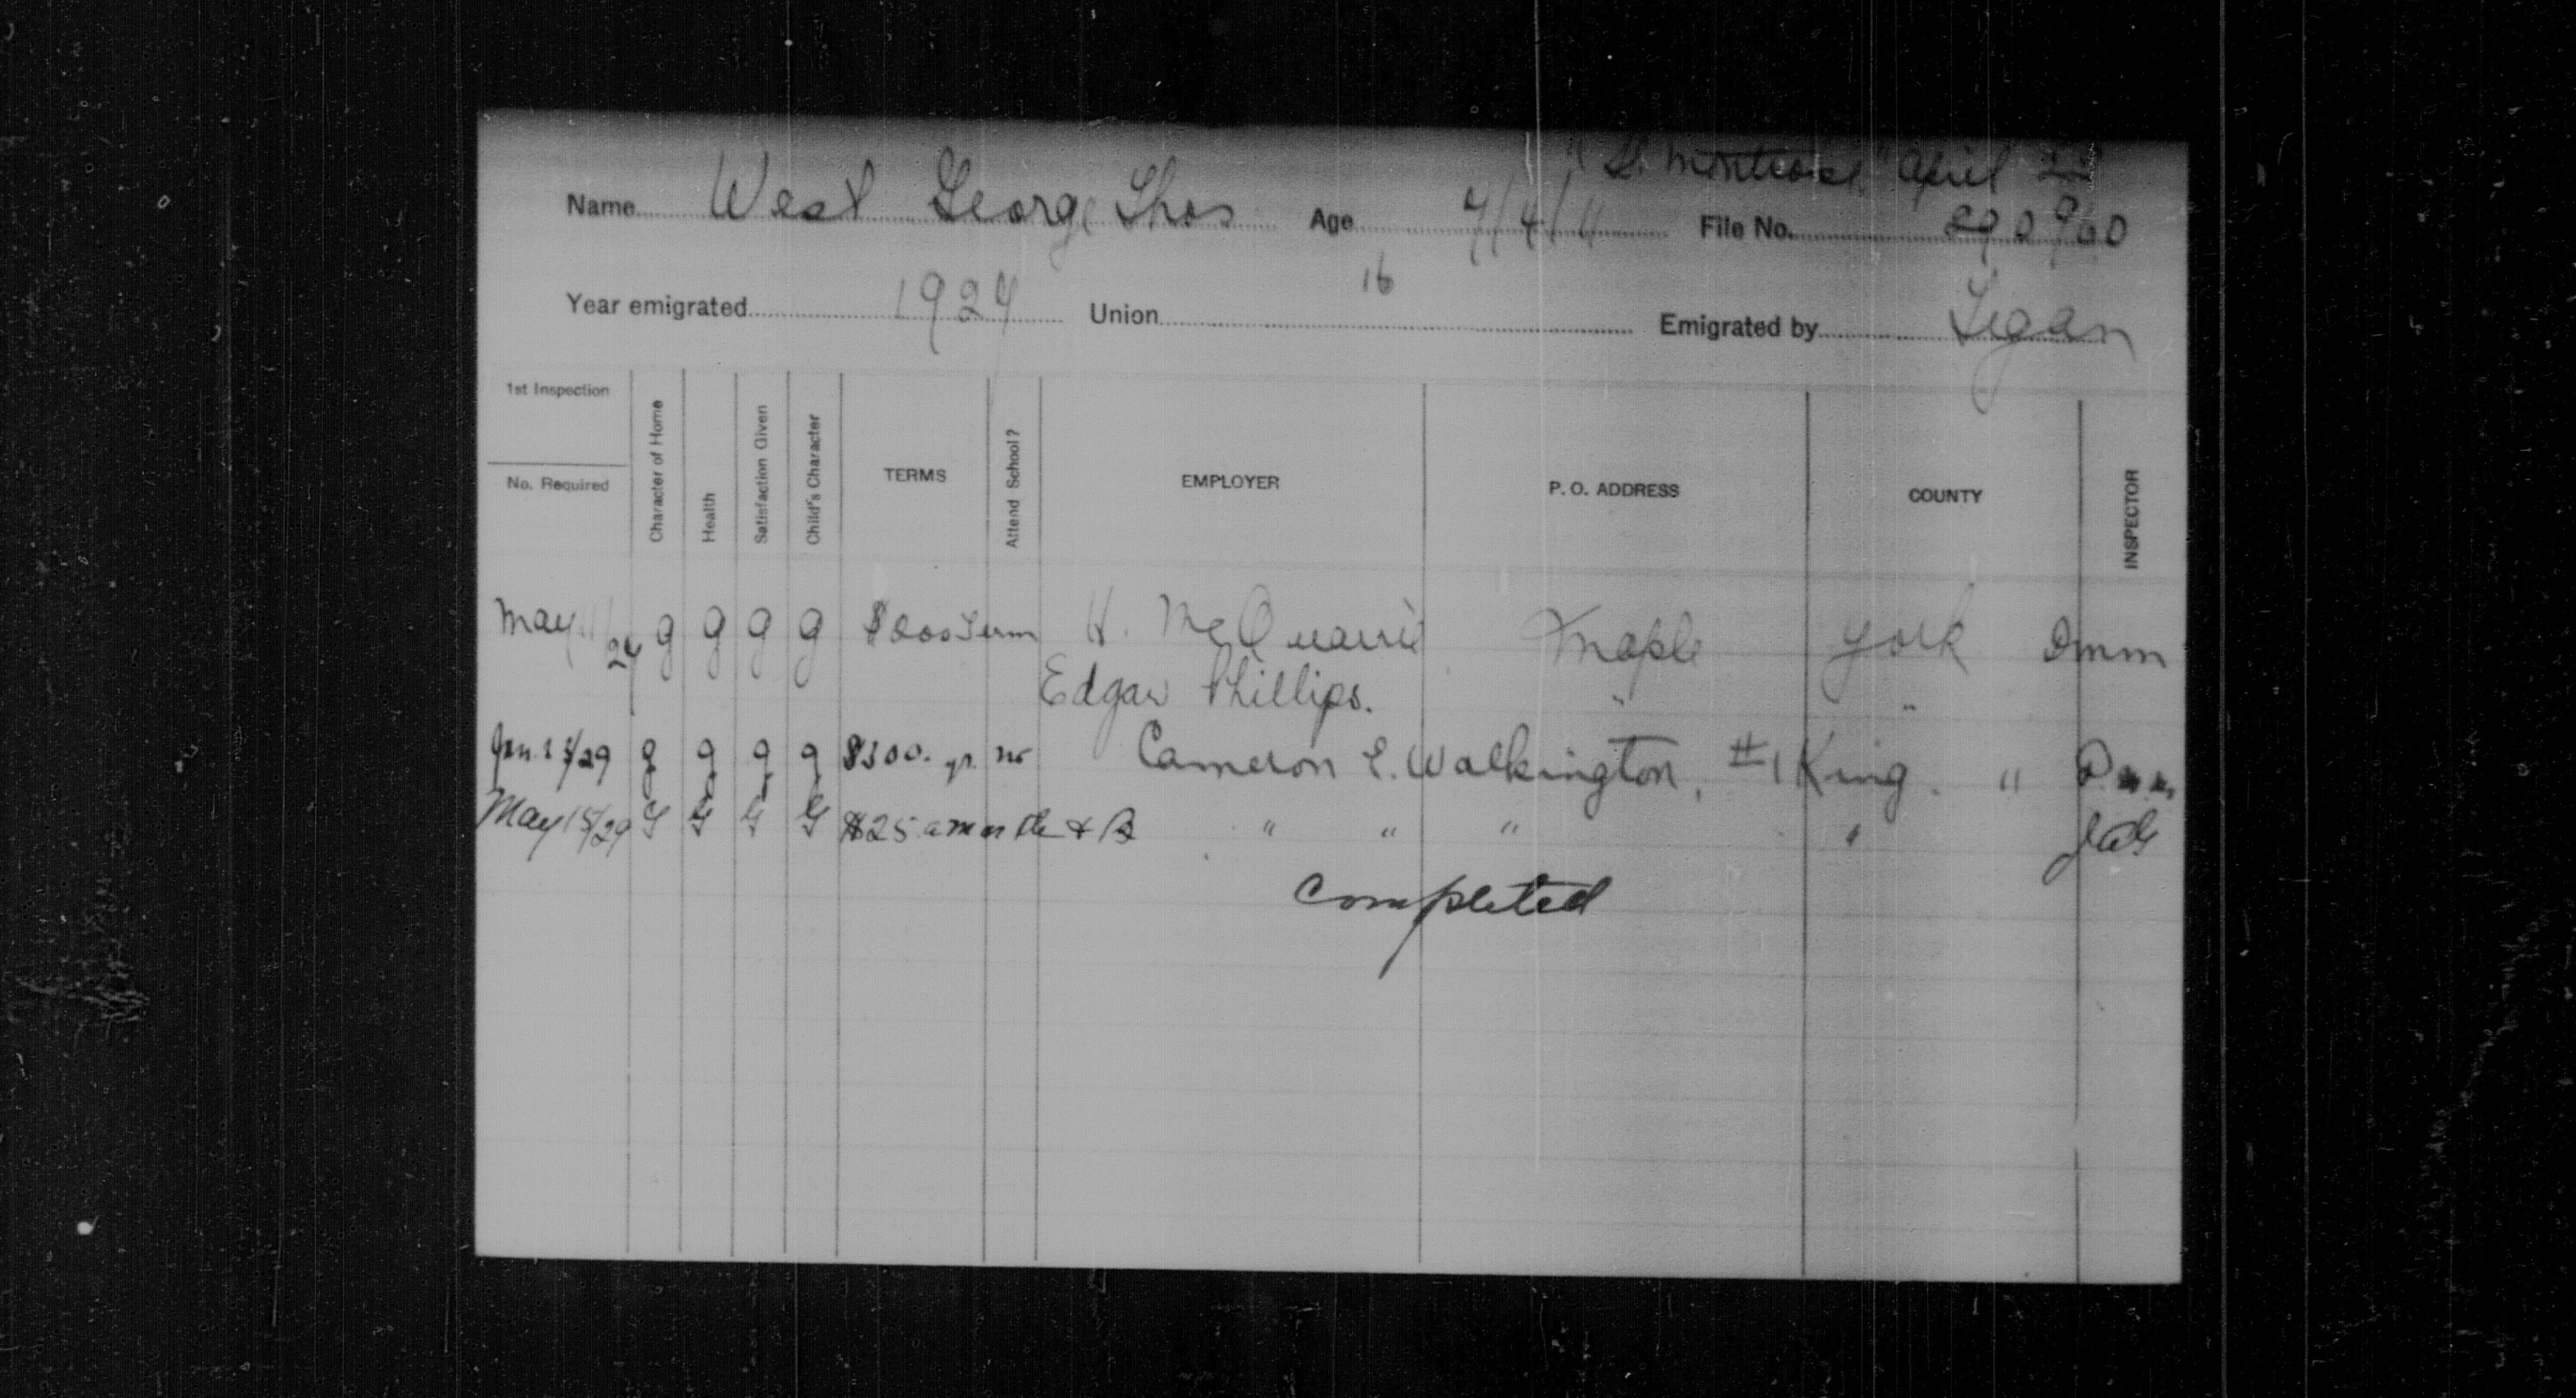 "S. Montrose" April 22
Name West George Thos Age 7/4/11 File No. 290960
Year emigrated 1924 Union 16 Emigrated by Legan
1st Inspection
No. Required
Character of Home
Health
Satisfaction Given
Child's Character
TERMS
Attend School?
EMPLOYER
P. O. ADDRESS
COUNTY
INSPECTOR
May 24 g g g g Term H. McQuarrie Maple York
Edgar Phillips. " "
Jan. /29 g g g g $300. yr. no Cameron E. Walkington, #1 King. "
May 15/29 G G G G $25 a month & B " " " " JAG
Completed